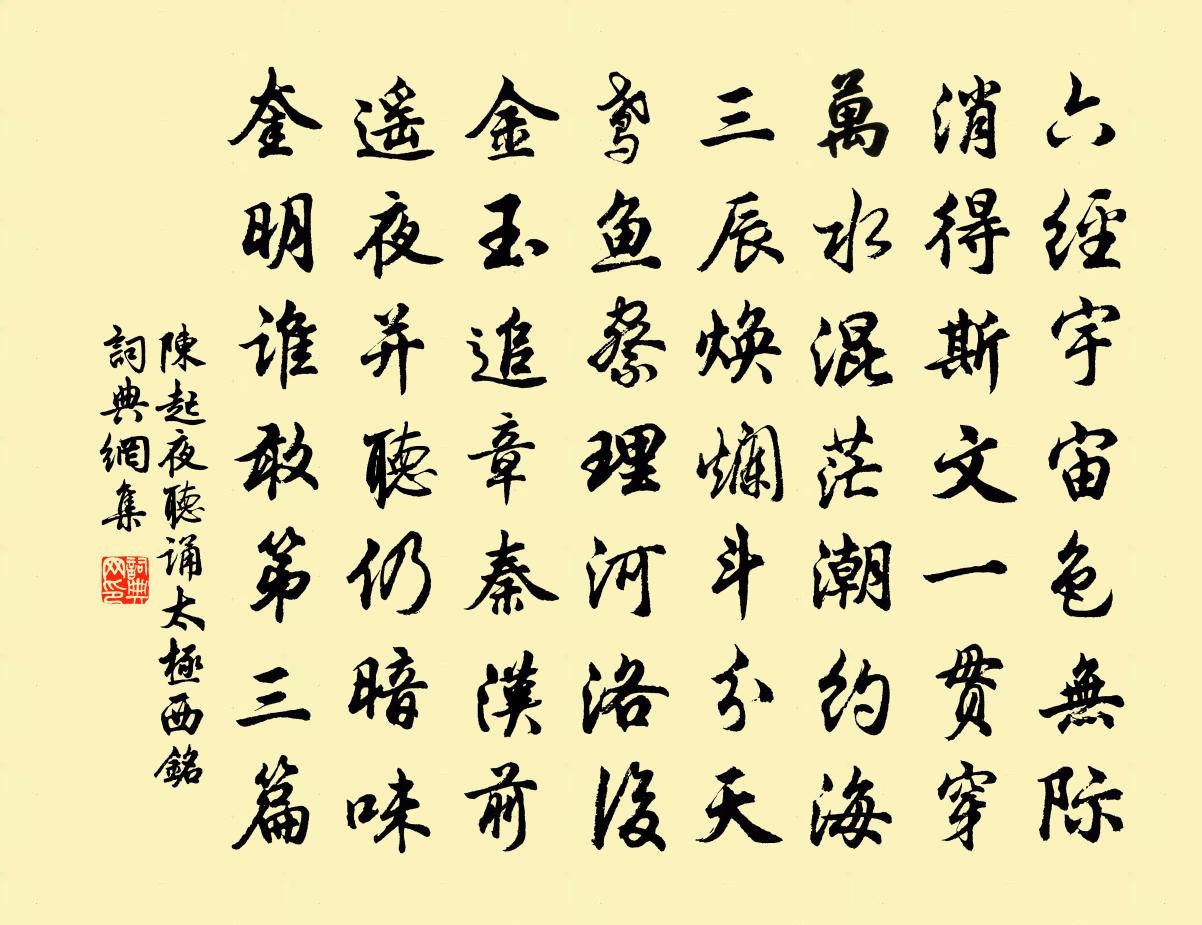 六經宇宙色無际
消得斯文一贯穿
萬水混茫潮約海
三辰煥爛斗分天
鸢魚察理河洛後
金玉追章秦漢前
遥夜并聽仍暗味
奎明谁敢第三篇
陳起夜聽诵太極西銘
詞典網集
詞典网印